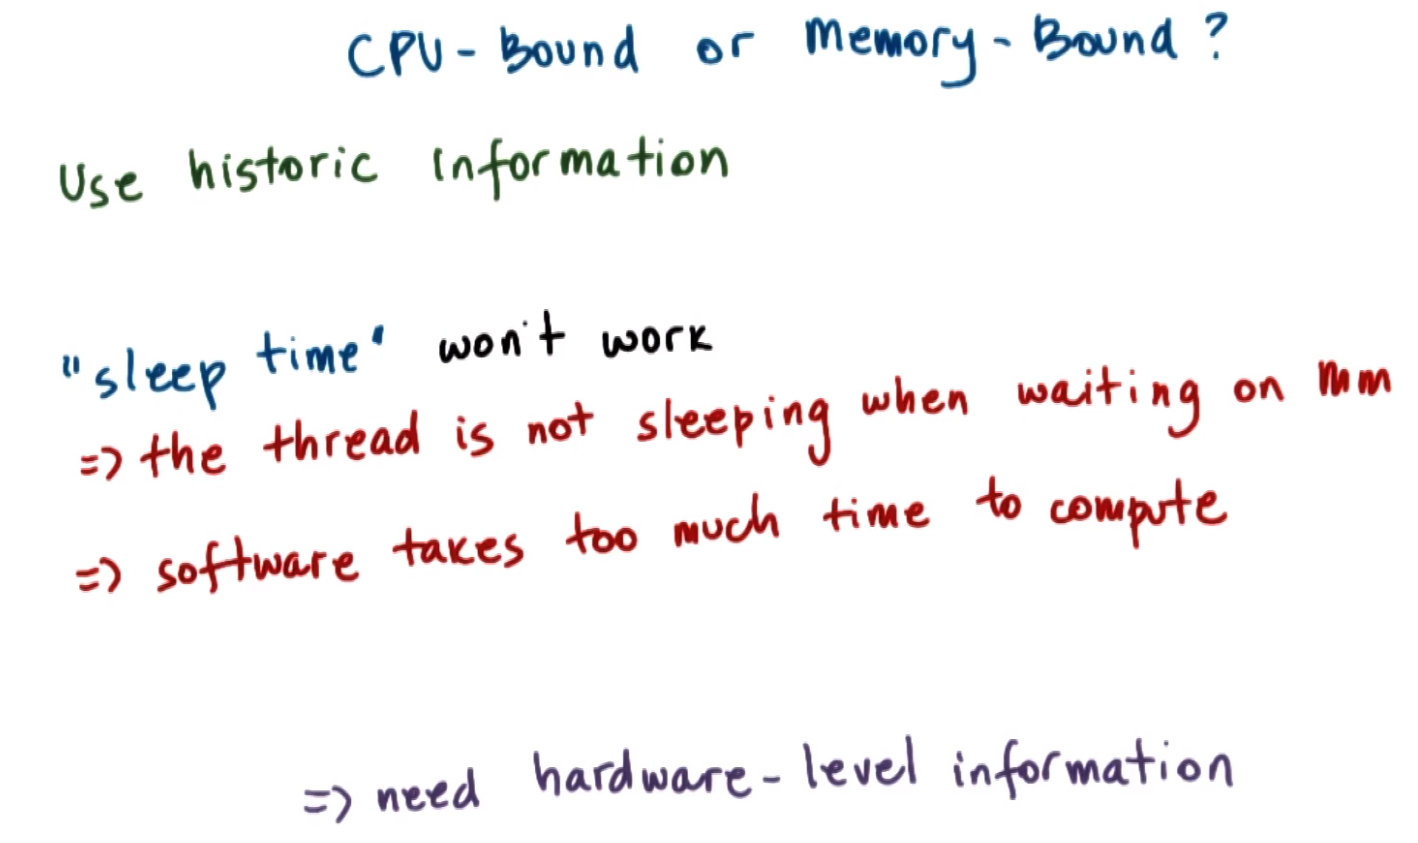 CPU-Bound or Memory-Bound?
Use historic information
"sleep time" won't work
=> the thread is not sleeping when waiting on mm
=> software takes too much time to compute
=> need hardware-level information